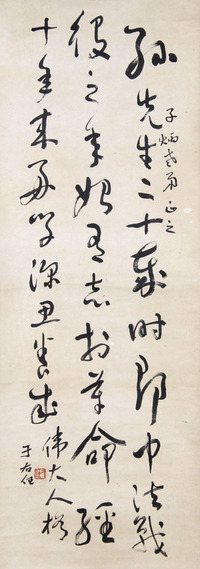 子炳老弟正之
孫先生二十歲時即中法戰
役之年始有志於革命經
十年來多學深思養成
偉大人格
于右任